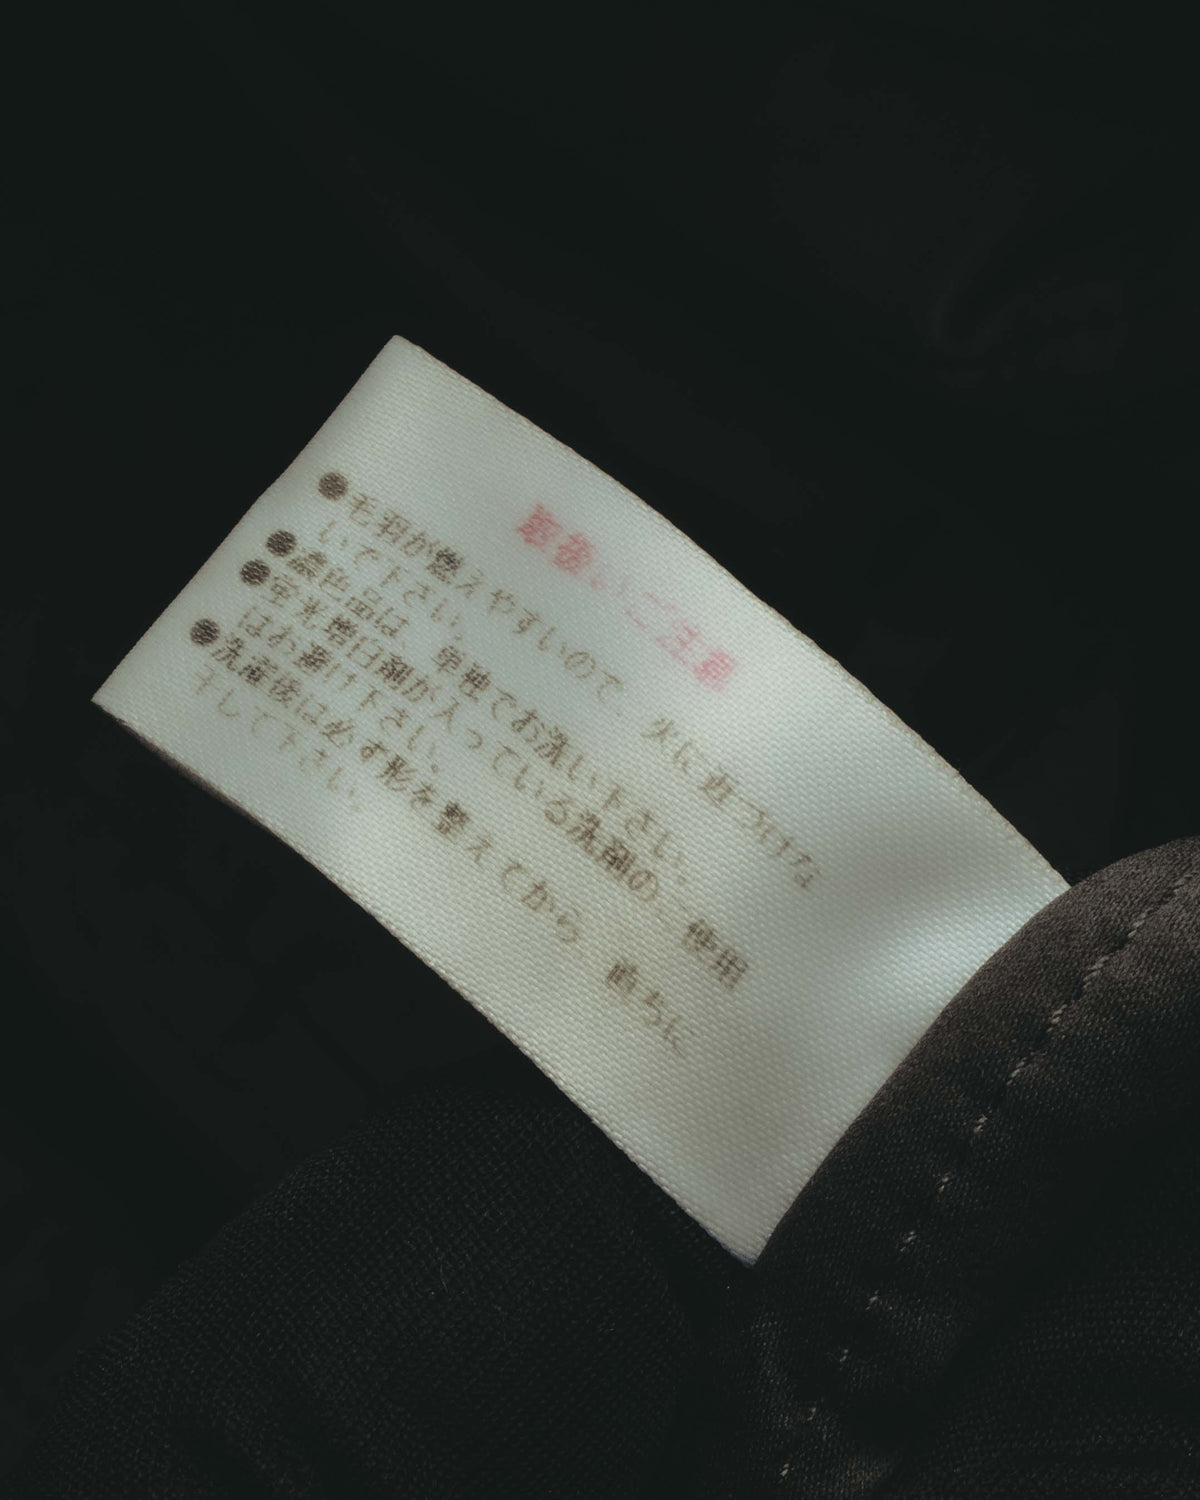 取扱いご注意
●毛羽が燃えやすいので、火に近づけな
いで下さい。
●濃色品は、単独でお洗い下さい。
●蛍光増白剤が入っている洗剤のご使用
はお避け下さい。
●洗濯後は必ず形を整えてから、直ちに
干して下さい。